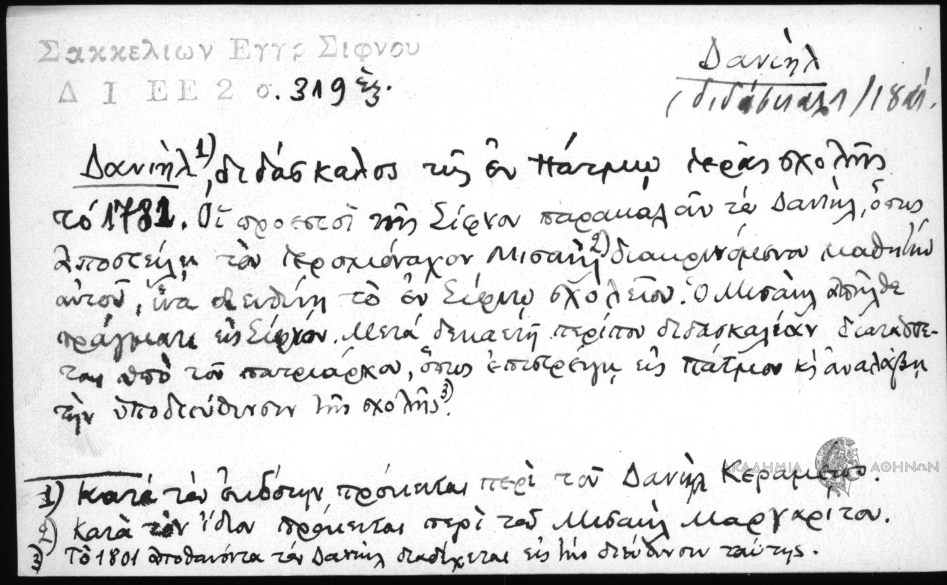 Σακκελιων Εγγρ Σιφνου
Δ Ι ΕΕ 2 σ. 319 ἑξ.
Δανιὴλ
διδάσκαλ
Δανιὴλ¹⁾, διδάσκαλος τῆς ἐν Πάτμῳ ἱερᾶς σχολῆς
τό 1781. Οἱ προεστοί τῆς Σίφνου παρακαλοῦν τὸν Δανιὴλ, ὅπως
ἀποστείλῃ τὸν ἱερομόναχον Μισαὴλ²⁾ διακρινόμενον μαθητὴν
αὐτοῦ, ἵνα διευθύνῃ τὸ ἐν Σίφνῳ σχολεῖον. Ὁ Μισαὴλ ἀπῆλθε
πράγματι εἰς Σίφνον. Μετά δεκαετῆ περίπου διδασκαλίαν διατάσσε-
ται ὑπὸ τοῦ πατριάρχου, ὅπως ἐπιστρέψῃ εἰς Πάτμον κ' ἀναλάβῃ
τὴν ὑποδιεύθυνσιν τῆς σχολῆς³⁾.
ΑΚΑΔΗΜΙΑ ΑΘΗΝΩΝ
1) Κατά τὸν ἐκδότην πρόκειται περὶ τοῦ Δανιὴλ Κεραμέως.
2) Κατὰ τὸν ἴδιον πρόκειται περὶ τοῦ Μισαὴλ Μαργαρίτου.
3) Τὸ 1801 ἀποθανόντα τὸν Δανιὴλ διαδέχεται εἰς τὴν διεύθυνσιν ταύτης.